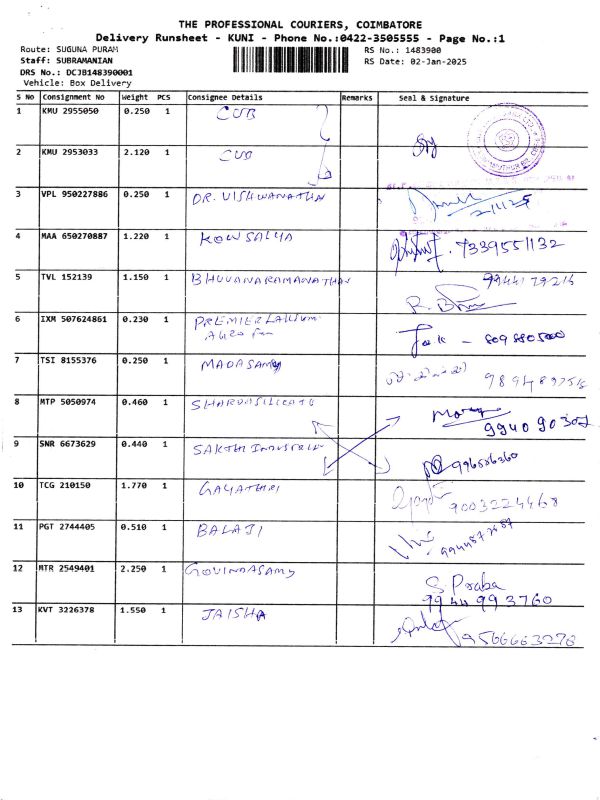 THE PROFESSIONAL COURIERS, COIMBATORE
Delivery Runsheet - KUNI - Phone No.:0422-3505555 - Page No.:1
Route: SUGUNA PURAM RS No.: 1483900
Staff: SUBRAMANIAN RS Date: 02-Jan-2025
DRS No.: DCJB148390001
Vehicle: Box Delivery
S No Consignment No Weight PCS Consignee Details Remarks Seal & Signature
1 KMU 2955050 0.250 1 CUB
2 KMU 2953033 2.120 1 CUB
3 VPL 950227886 0.250 1 DR. VISHWANATHAN 2/1/25
4 MAA 650270887 1.220 1 KOWSALYA 7339551132
5 TVL 152139 1.150 1 BHUVANARAMANATHAN 9944179216
6 IXM 507624861 0.230 1 PREMIER
7 TSI 8155376 0.250 1 MADASAMY
8 MTP 5050974 0.460 1
9 SNR 6673629 0.440 1 SAKTHI INDUSTRIES
10 TCG 210150 1.770 1 GAYATHRI 9003224468
11 PGT 2744405 0.510 1 BALAJI
12 MTR 2549401 2.250 1 GOVINDASAMY S. Praba
9944993760
13 KVT 3226378 1.550 1 JAISHA 9566663278